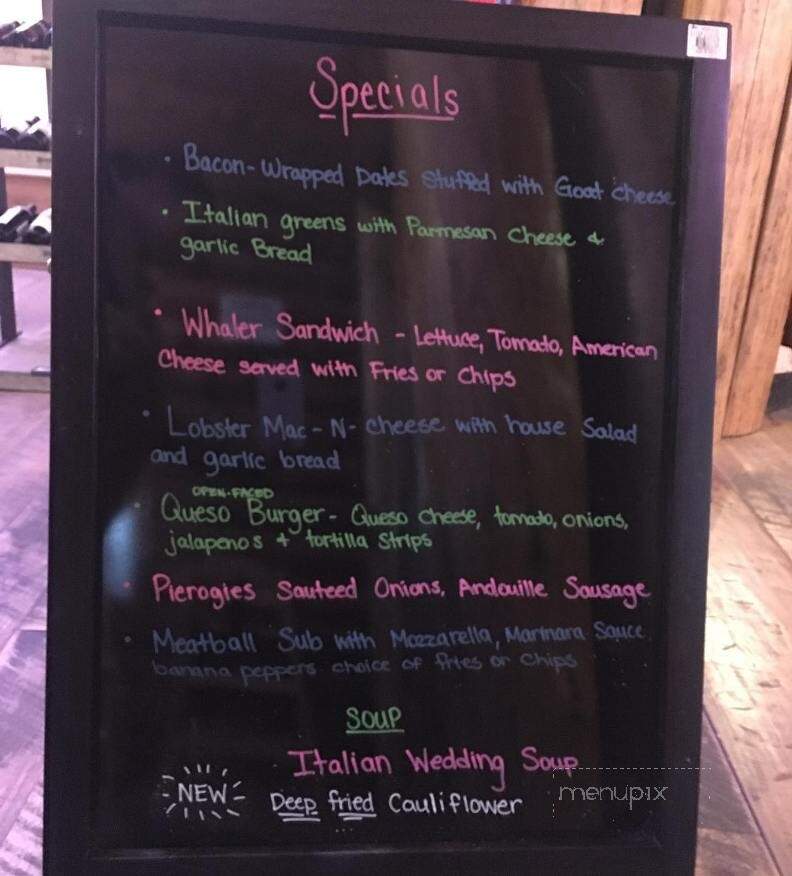 Specials
• Bacon-Wrapped Dates Stuffed with Goat cheese
• Italian greens with Parmesan Cheese &
garlic Bread
• Whaler Sandwich - Lettuce, Tomato, American
Cheese served with Fries or Chips
• Lobster Mac-N-cheese with house Salad
and garlic bread
OPEN-FACED
• Queso Burger - Queso cheese, tomato, onions,
jalapenos + tortilla strips
• Pierogies Sauteed Onions, Andouille Sausage
• Meatball Sub with Mozzarella, Marinara Sauce
banana peppers choice of fries or chips
SOUP
Italian Wedding Soup
NEW Deep fried Cauliflower
menupix